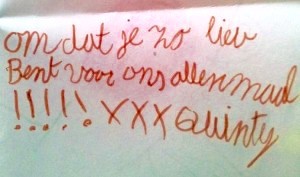 om dat je zo lieu
Bent voor ons allen maal
!!!!! XXX Quinty